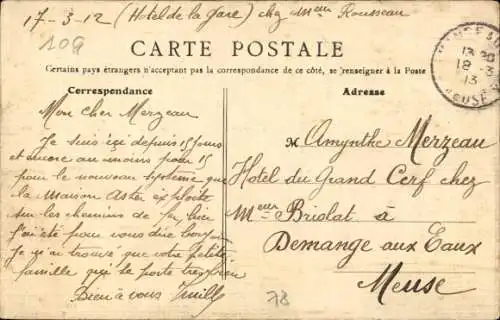 17-3-12 (Hotel de la Gare) chez Meur Rousseau
109
CARTE POSTALE
Certains pays étrangers n'acceptant pas la correspondance de ce côté, se renseigner à la Poste
Correspondance
Mon cher Merzeau
Je suis ici depuis 15 jours
et encore au moins pour 15
pour le nouveau système que
la Maison Aster exploite
sur les chemins de fer, hier
J'ai été pour vous dire bonjour
Je n'ai trouvé que votre petite
famille qui se porte très bien
Bien à vous
Adresse
Amynthe Merzeau
Hotel du Grand Cerf chez
Meur Briolat à
Demange aux Eaux
Meuse
78
18-3
13
MEUSE